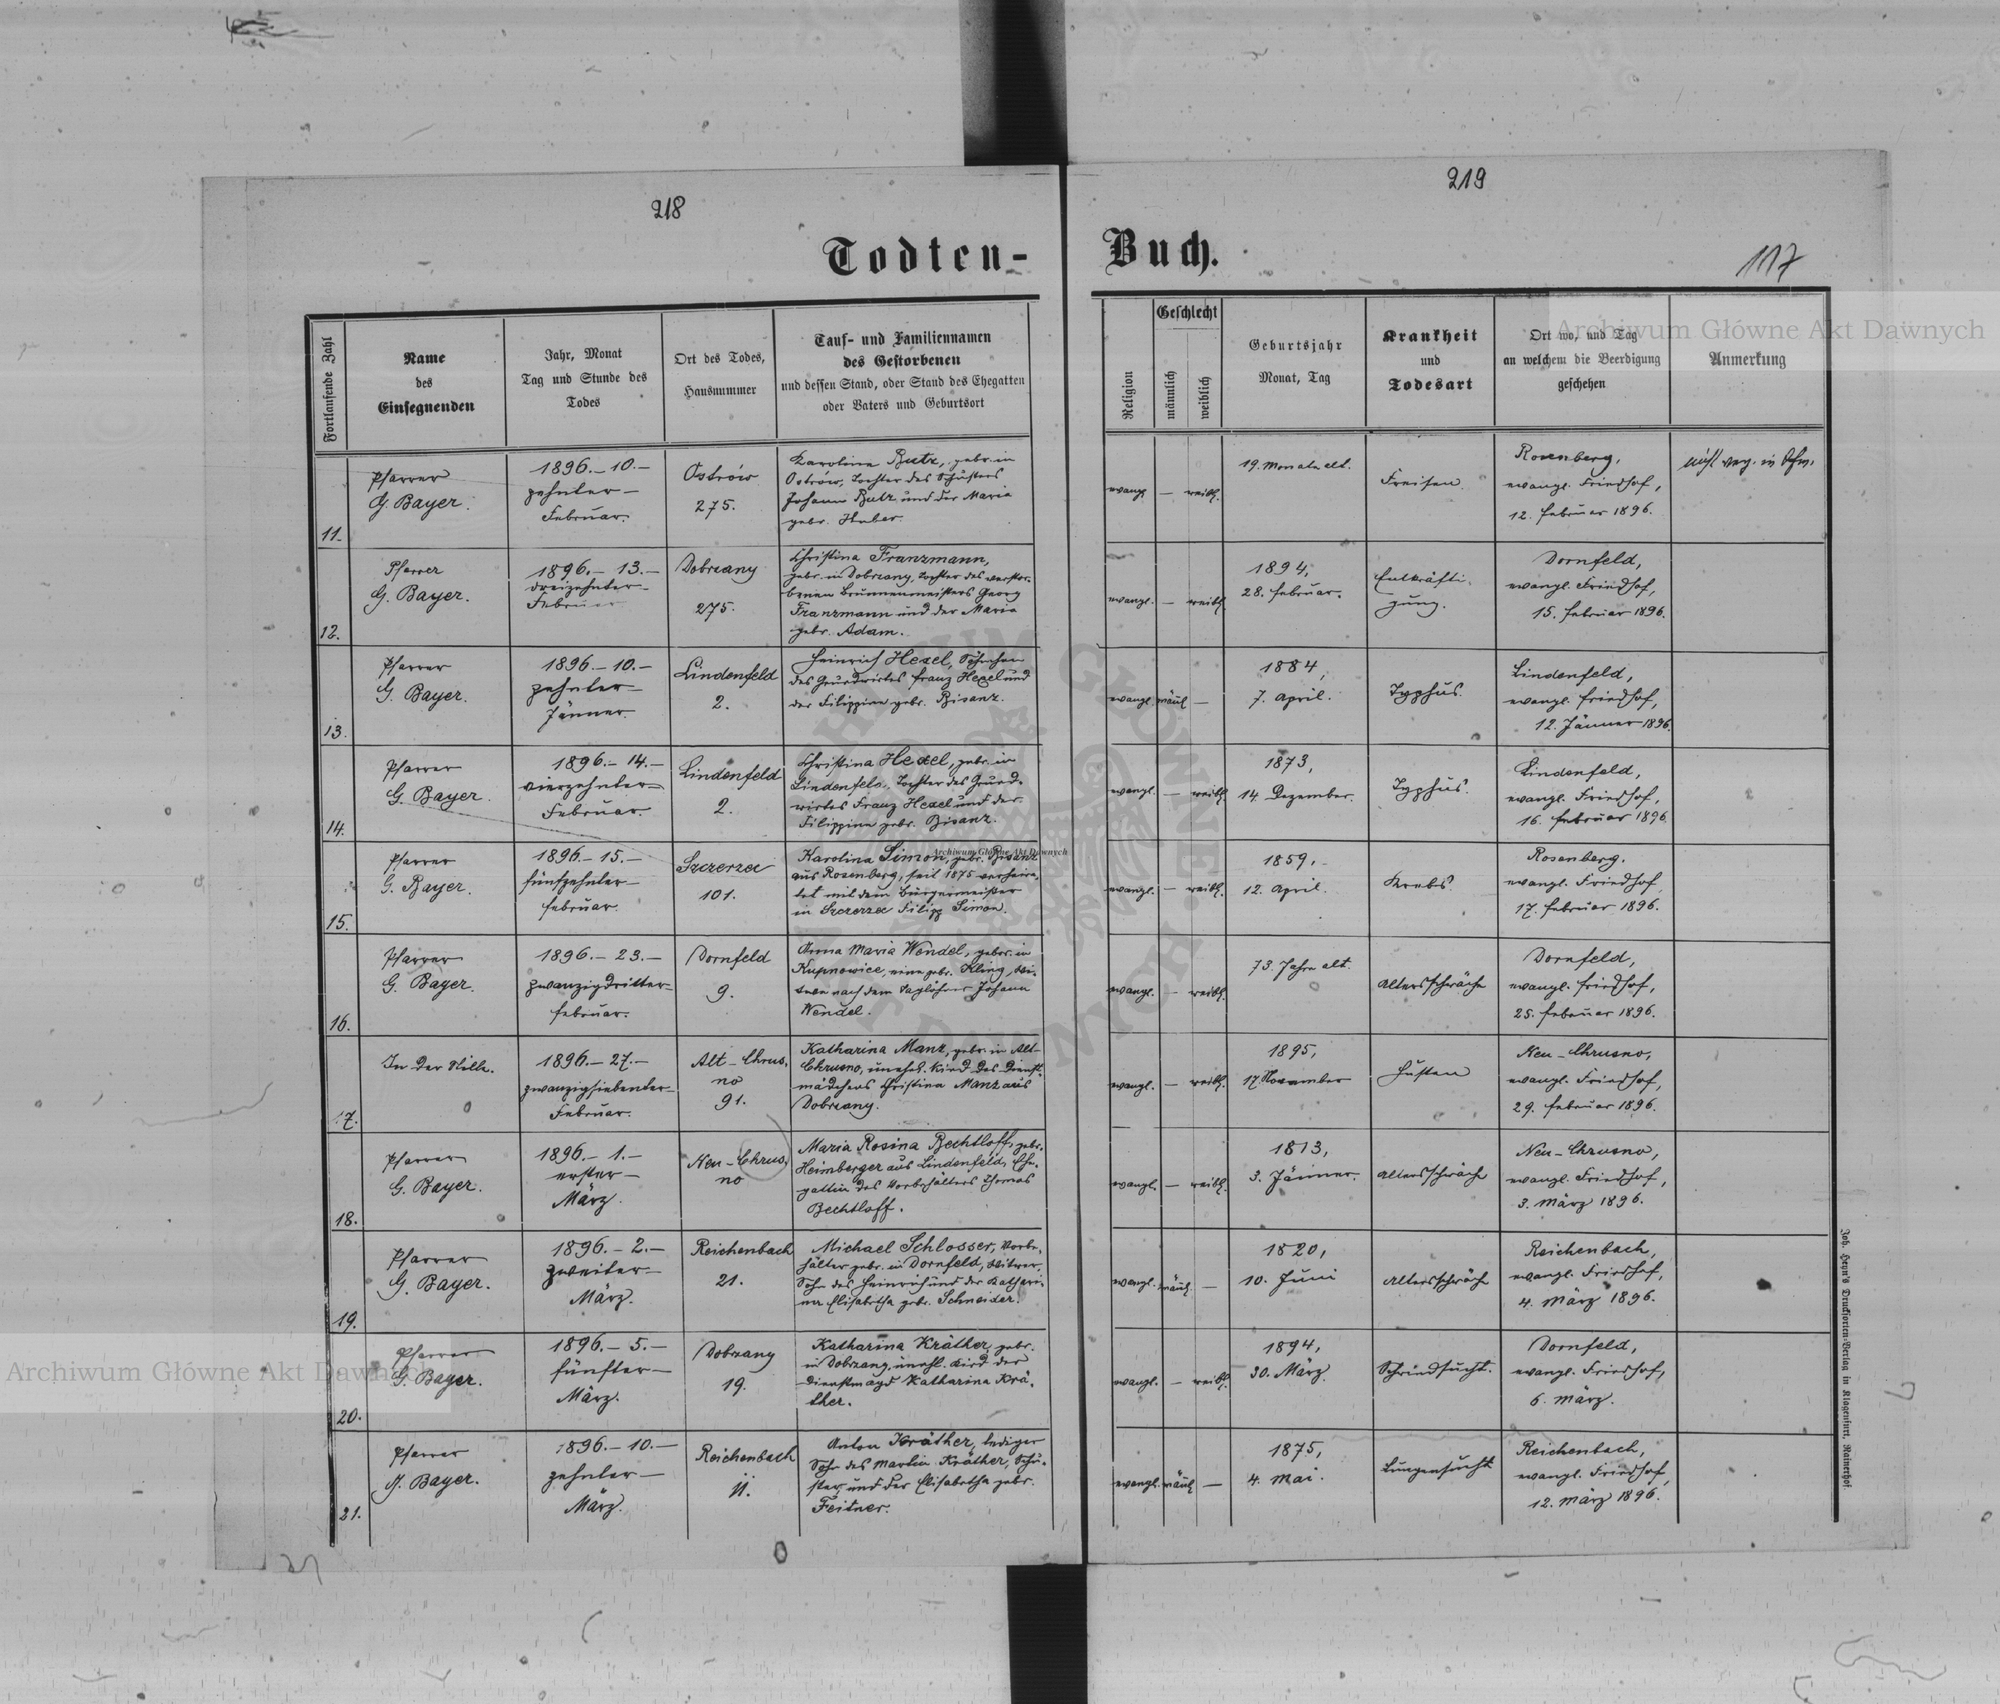 218
219
Todten-
Buch.
117
Fortlaufende Zahl
Name
des
Einsegnenden
Jahr, Monat
Tag und Stunde des
Todes
Ort des Todes,
Hausnummer
Tauf- und Familiennamen
des Gestorbenen
und dessen Stand, oder Stand des Ehegatten
oder Vaters und Geburtsort
Religion
Geschlecht
männlich
weiblich
Geburtsjahr
Monat, Tag
Krankheit
und
Todesart
Ort wo, und Tag
an welchem die Beerdigung
geschehen
Anmerkung
11.
Pfarrer
G. Bayer.
1896.- 10.-
zehnter-
Februar.
Ostrów
275.
Karolina Butz, gebr. in
Ostrów, Tochter des Schusters
Johann Butz und der Maria
gebr. Huber.
evangl. — weibl.
19. Monate alt.
Freisen.
Rosenberg,
evangl. Friedhof,
12. Februar 1896.
nicht in
12.
Pfarrer
G. Bayer.
1896.- 13.-
dreizehnter-
Februar
Dobrzany
275.
Christina Franzmann,
gebr. in Dobrzany, Tochter des verstor-
benen Brunnenmeisters Georg
Franzmann und der Maria
gebr. Adam.
evangl. — weibl.
1894,
28. Februar.
Entkräfti-
gung.
Dornfeld,
evangl. Friedhof,
15. Februar 1896.
13.
Pfarrer
G. Bayer.
1896.- 10.-
zehnter-
Jänner.
Lindenfeld
2.
Heinrich Hexel, Söhnchen
des Grundwirtes Franz Hexel und
der Filippina gebr. Bisanz.
evangl. mänl. —
1884,
7. April.
Typhus.
Lindenfeld,
evangl. Friedhof,
12. Jänner 1896.
14.
Pfarrer
G. Bayer.
1896.- 14.-
vierzehnter-
Februar.
Lindenfeld
2.
Christina Hexel, gebr. in
Lindenfeld, Tochter des Grund-
wirtes Franz Hexel und der
Filippina gebr. Bisanz.
evangl. — weibl.
1873,
14. Dezember.
Typhus.
Lindenfeld,
evangl. Friedhof,
16. Februar 1896.
15.
Pfarrer
G. Bayer.
1896.- 15.-
fünfzehnter-
Februar.
Szczerzec
101.
Karolina Simon, gebr. Bisanz
aus Rosenberg, seit 1875 verheira-
tet mit dem Bürgermeister
in Szczerzec Filipp Simon.
evangl. — weibl.
1859,
12. April.
Krebs.
Rosenberg.
evangl. Friedhof
17. Februar 1896.
16.
Pfarrer
G. Bayer.
1896.- 23.-
zwanzigdritter-
Februar.
Dornfeld
9.
Anna Maria Wendel, gebr. in
Kupnowice, eine gebr. Kling, Wi-
twe nach dem Taglöhner Johann
Wendel.
evangl. — weibl.
73. Jahre alt.
Altersschwäche
Dornfeld,
evangl. Friedhof,
25. Februar 1896.
17.
In der Stille.
1896.- 27.-
zwanzigsiebenter-
Februar.
Alt-Chrus,
no
91.
Katharina Manz, gebr. in Alt-
Chrusno, unehel. Kind des Dienst-
mädchens Christina Manz aus
Dobrzany.
evangl. — weibl.
1895,
17. November
Husten
Neu-Chrusno,
evangl. Friedhof,
29. Februar 1896.
18.
Pfarrer
G. Bayer.
1896.- 1.-
erster-
März.
Neu-Chrus,
no
Maria Rosina Bechtloff, gebr.
Heimberger aus Lindenfeld, Ehe-
gattin des Vorbehälters Thomas
Bechtloff.
evangl. — weibl.
1813,
3. Jänner.
Altersschwäche
Neu-Chrusno,
evangl. Friedhof,
3. März 1896.
19.
Pfarrer
G. Bayer.
1896.- 2.-
zweiter-
März.
Reichenbach
21.
Michael Schlosser, Vorbe-
hälter gebr. in Dornfeld, Witwer,
Sohn des Heinrich und der Kathari-
na Elisabetha gebr. Schneider.
evangl. mänl. —
1820,
10. Juni
Altersschwäche
Reichenbach,
evangl. Friedhof,
4. März 1896.
20.
Pfarrer
G. Bayer.
1896.- 5.-
fünfter-
März.
Dobrzany
19.
Katharina Kräther, gebr.
in Dobrzany, unehl. Kind der
Dienstmagd Katharina Krä-
ther.
evangl. — weibl.
1894,
30. März.
Schwindsucht.
Dornfeld,
evangl. Friedhof,
6. März.
21.
Pfarrer
G. Bayer.
1896.- 10.-
zehnter-
März.
Reichenbach
11.
Anton Kräther, lediger
Sohn des Martin Kräther, Schu-
ster, und der Elisabetha gebr.
Feitner.
evangl. mänl. —
1875,
4. Mai.
Lungensucht
Reichenbach,
evangl. Friedhof,
12. März 1896.
Joh. Heyn's Drucksorten-Verlag in Klagenfurt, Rainerhof.
Archiwum Główne Akt Dawnych
Archiwum Główne Akt Dawnych
Archiwum Główne Akt Dawnych
ARCHIWUM GŁÓWNE AKT DAWNYCH